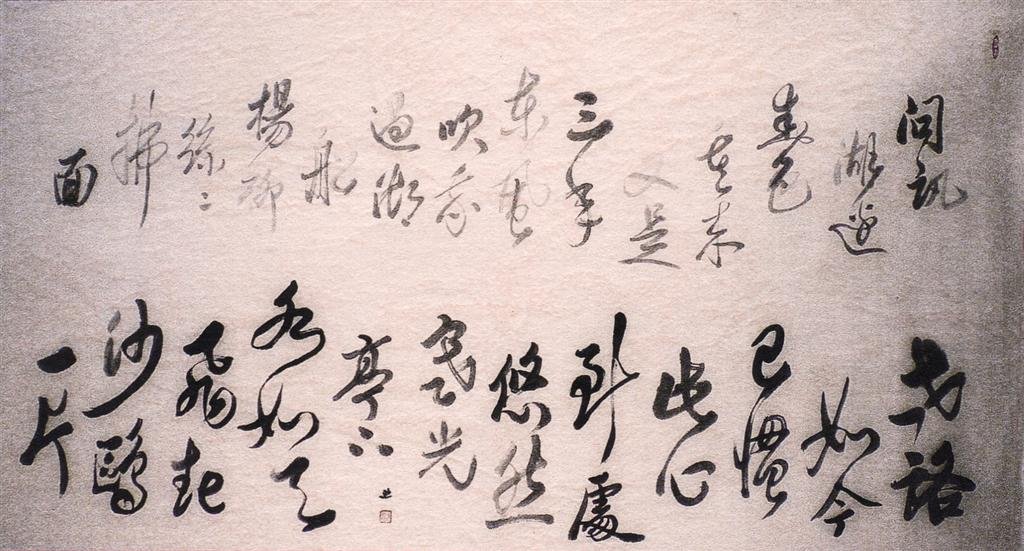 問訊
湖邊
春色
重來
又是
三年
東風
吹我
過湖
船
楊柳
絲〻
拂
面
世路
如今
已慣
此心
到處
悠然
寒光
亭下
水如天
飛起
沙鷗
一片